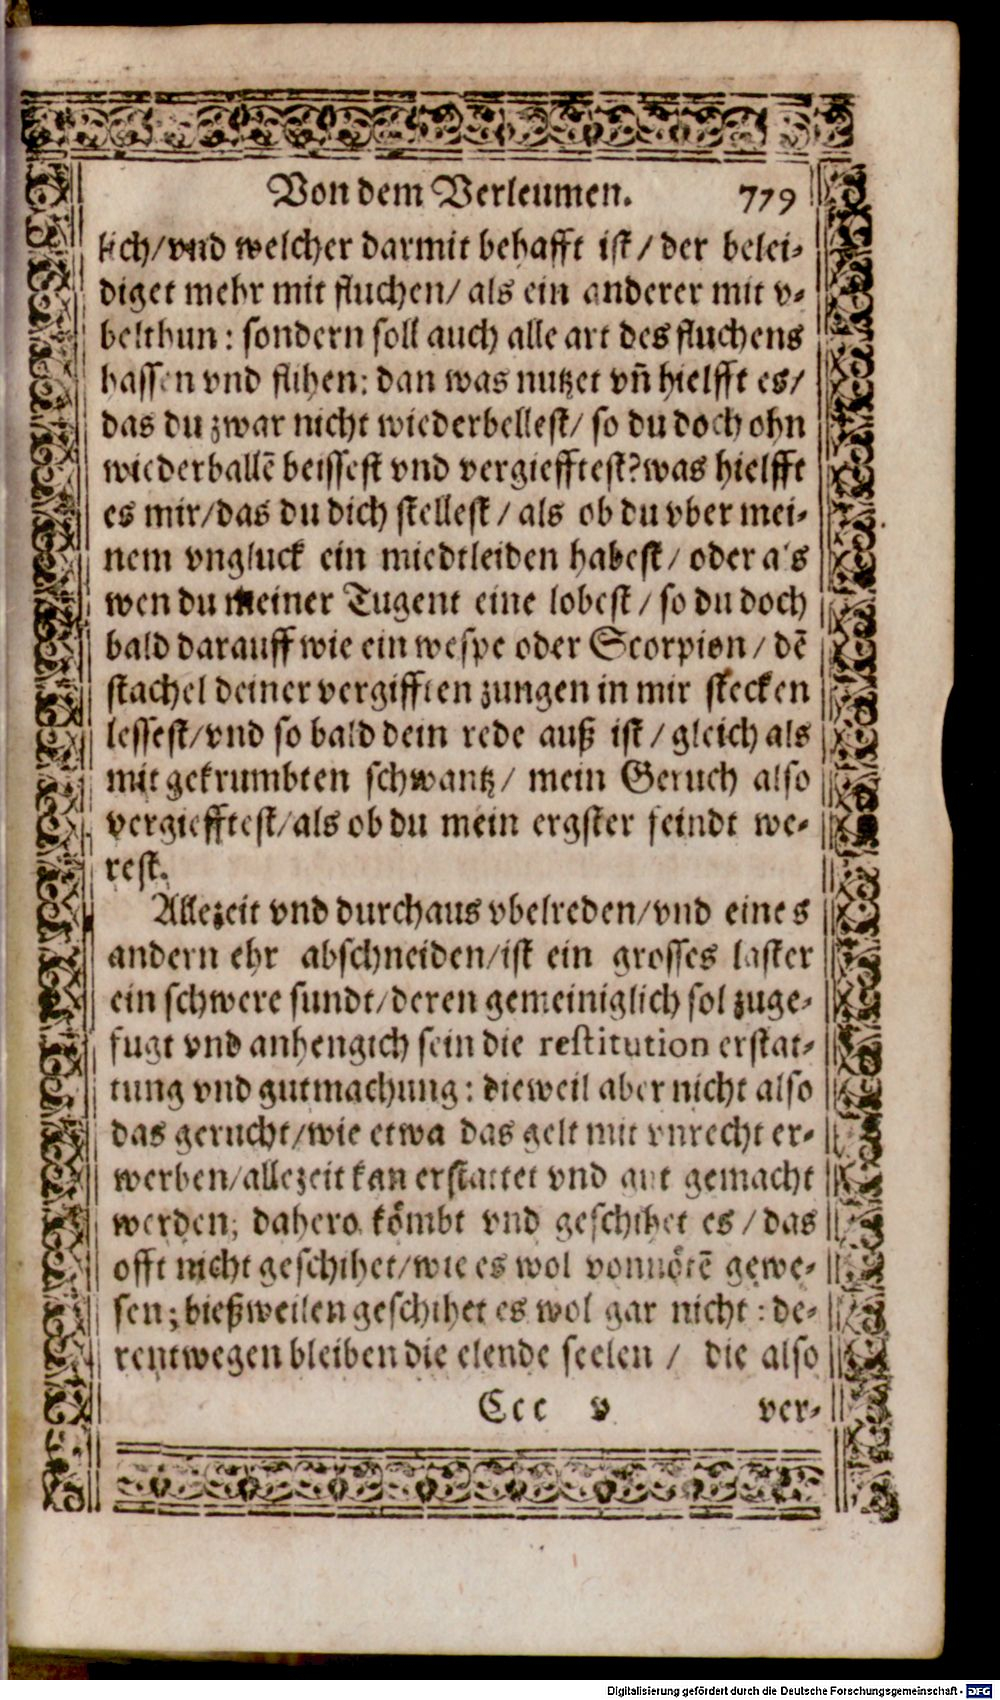 Von dem Verleumen. 779
lich/vnd welcher darmit behafft ist/ der belei-
diget mehr mit fluchen/ als ein anderer mit v-
belthun: sondern soll auch alle art des fluchens
hassen vnd flihen: dan was nutzet vñ hielfft es/
das du zwar nicht wiederbellest/ so du doch ohn
wiederballē beissest vnd vergiefftest? was hielfft
es mir/das du dich stellest / als ob du vber mei-
nem vngluck ein miedtleiden habest / oder als
wen du meiner Tugent eine lobest / so du doch
bald darauff wie ein wespe oder Scorpion / dē
stachel deiner vergifften zungen in mir stecken
lessest/vnd so bald dein rede auß ist / gleich als
mit gekrumbten schwantz / mein Geruch also
vergiefftest/als ob du mein ergster feindt we-
rest.
Allezeit vnd durchaus vbelreden/vnd eines
andern ehr abschneiden/ist ein grosses laster
ein schwere sundt/deren gemeiniglich sol zuge-
fugt vnd anhengich sein die restitution erstat-
tung vnd gutmachung: dieweil aber nicht also
das gerucht/wie etwa das gelt mit vnrecht er-
werben/allezeit kan erstattet vnd gut gemacht
werden; dahero kömbt vnd geschihet es / das
offt nicht geschihet/wie es wol vonnötē gewe-
sen; bießweilen geschihet es wol gar nicht : de-
rentwegen bleiben die elende seelen / die also
Ccc v ver-
Digitalisierung gefördert durch die Deutsche Forschungsgemeinschaft - DFG